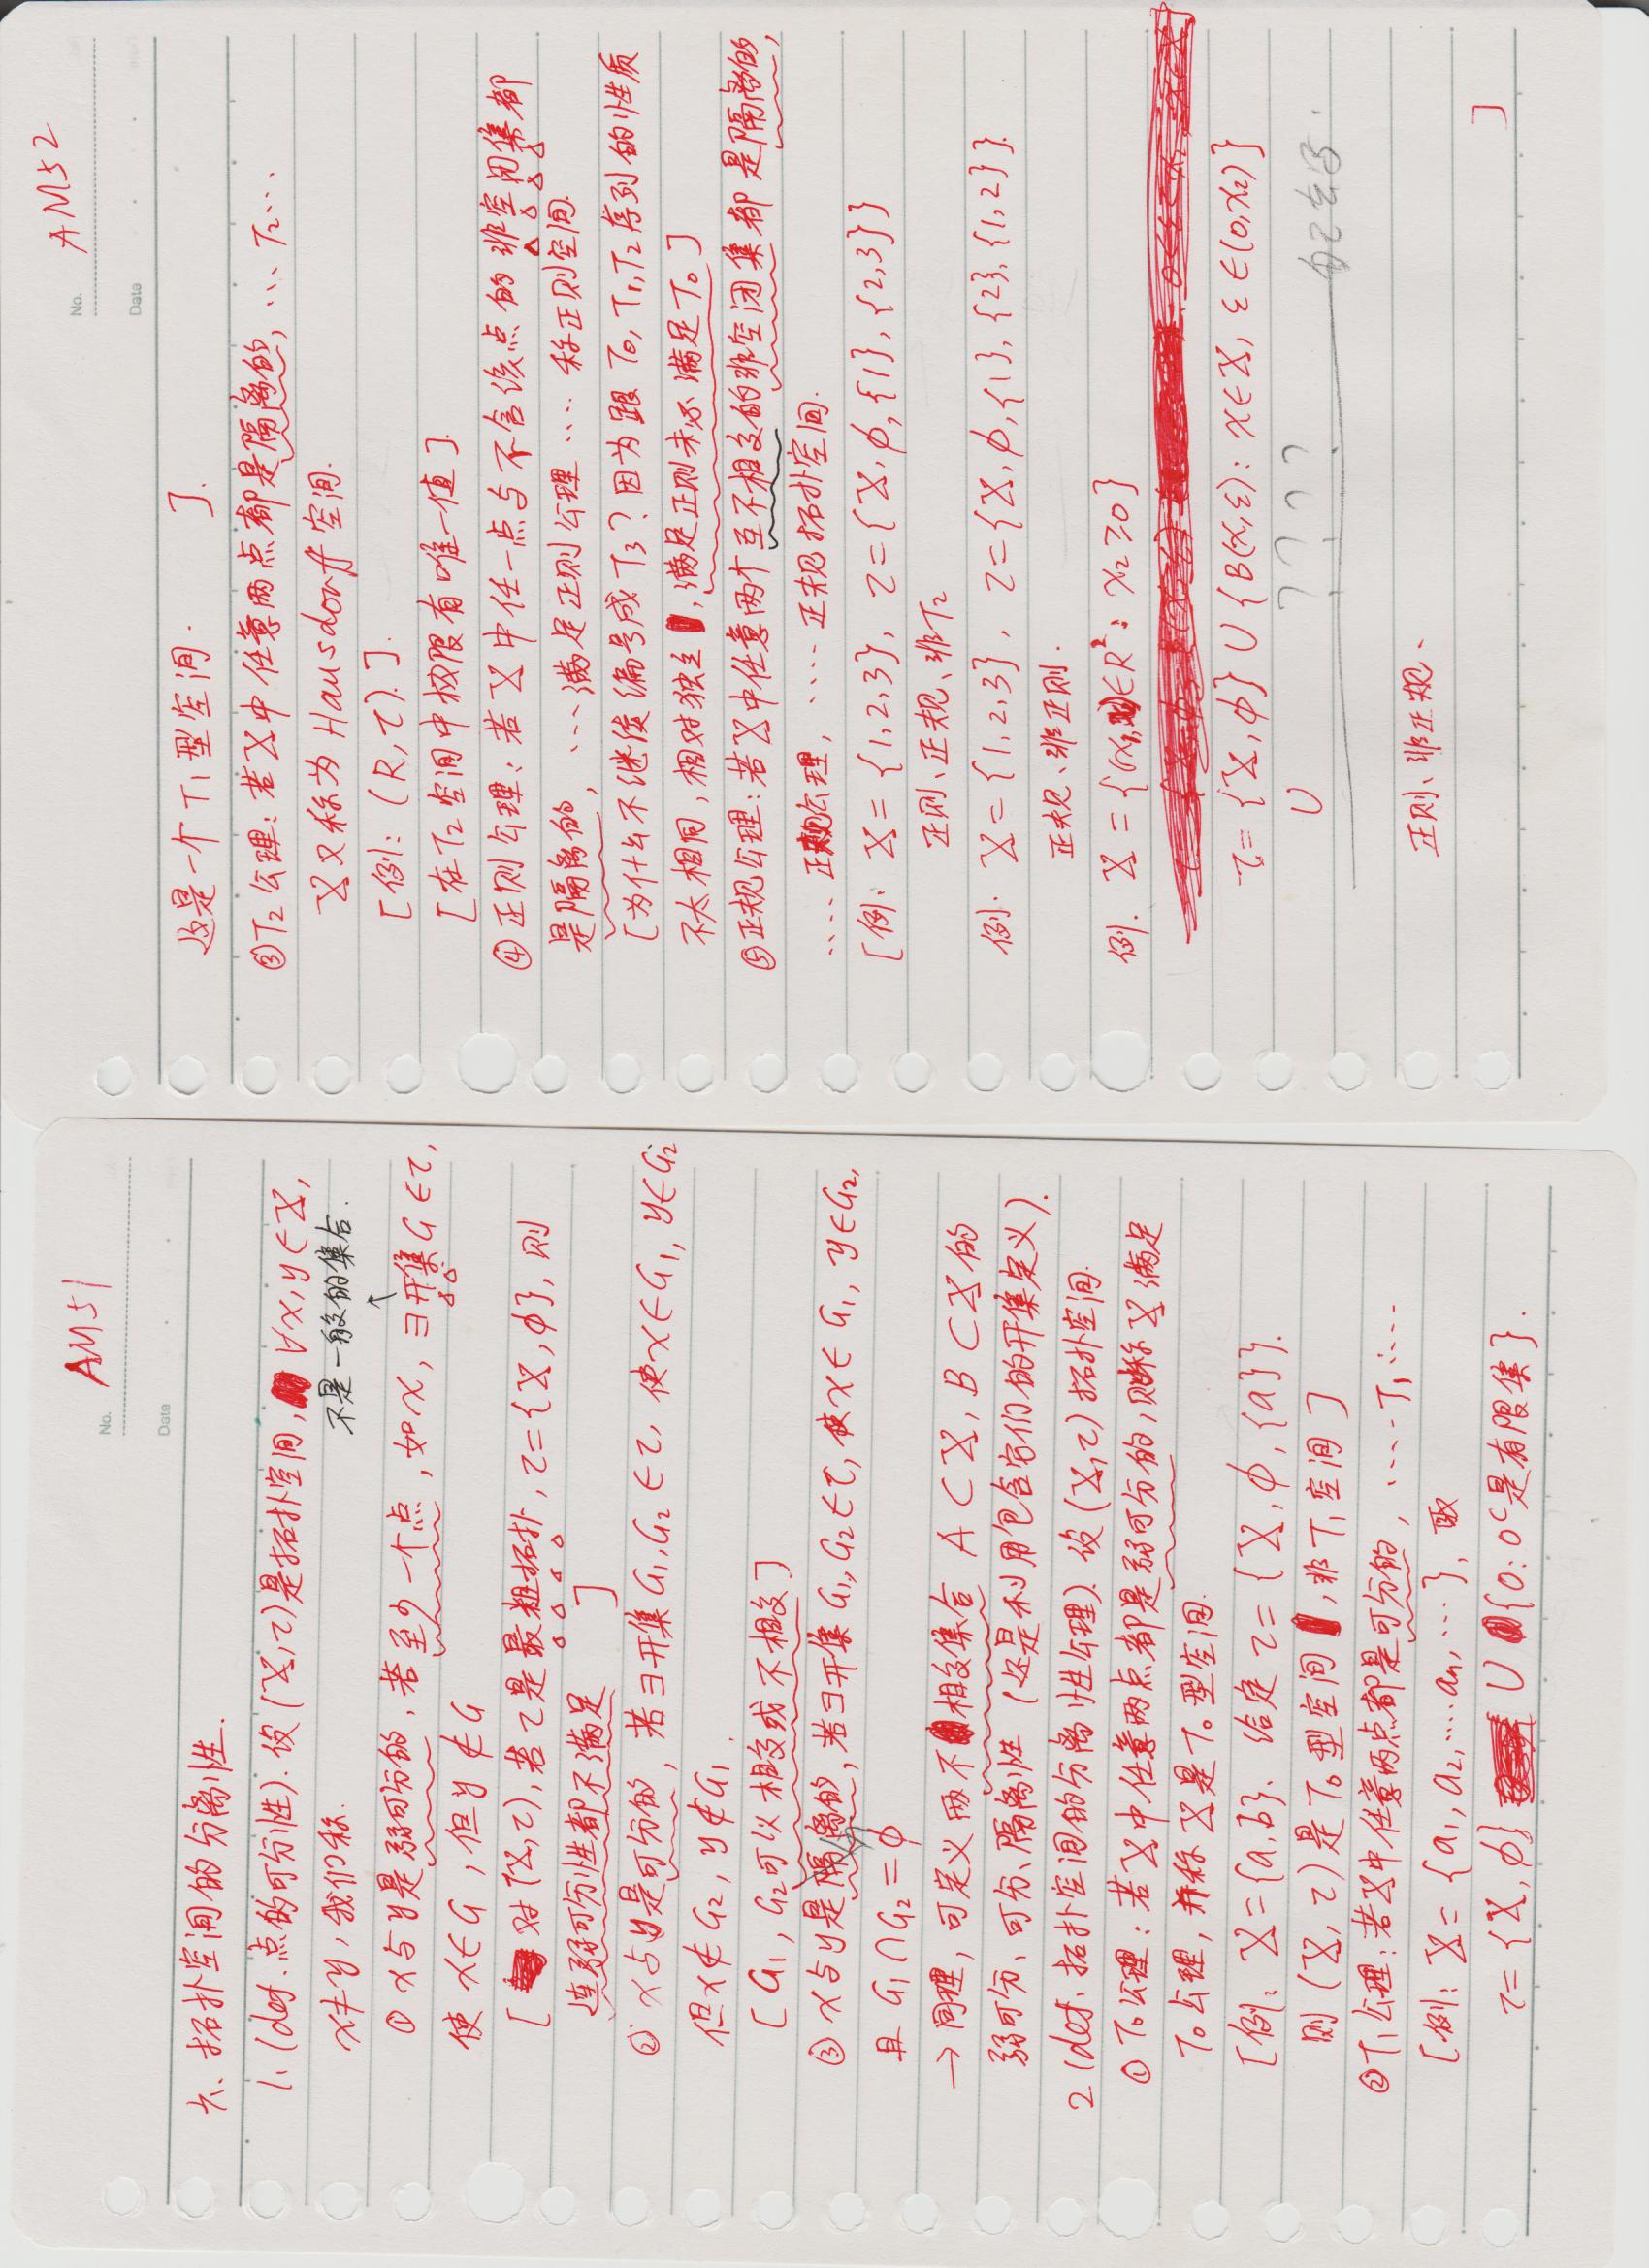 No. AM51
Date
六、拓扑空间的分离性.
1. (def. 点的可分性). 设 (X,τ)是拓扑空间, ∀x,y∈X,
x≠y, 我们称.
不是一般的集合.
↑
① x与y是弱可分的, 若至少一个点, 如x, ∃开集G∈τ,
使 x∈G, 但y∉G
[ 对(X,τ), 若τ是最粗拓扑, τ={X,φ}, 则
连弱可分性都不满足 ]
② x与y是可分的, 若∃开集G₁,G₂∈τ, 使x∈G₁, y∈G₂
但x∉G₂, y∉G₁.
[G₁, G₂可以相交或不相交]
③ x与y是隔离的, 若∃开集G₁,G₂∈τ, 使x∈G₁, y∈G₂,
分
且 G₁∩G₂=φ
→ 同理, 可定义两不相交集合 A⊂X, B⊂X的
弱可分、可分、隔离性 (还是利用包含它们的开集定义).
2 (def. 拓扑空间的分离性公理). 设(X,τ)拓扑空间.
① T₀公理: 若X中任意两点都是弱可分的, 则称X满足
T₀公理, 并称X是T₀型空间.
[例: X={a,b}. 给定τ={X,φ,{a}}.
则(X,τ)是T₀型空间, 非T₁空间]
② T₁公理: 若X中任意两点都是可分的, ……T₁……
[例: X={a₁,a₂,…aₙ,…}, 取
τ={X,φ} ∪ {O: Oᶜ是有限集}.
No. AM52
Date
这是一个T₁型空间. ].
③T₂公理: 若X中任意两点都是隔离的, …T₂…
X又称为Hausdorff空间.
[例: (R,τ).].
[在T₂空间中极限有唯一值].
④ 正则公理: 若X中任一点与不含该点的非空闭集都
是隔离的, …满足正则公理…. 称正则空间.
[为什么不继续编号成T₃? 因为跟T₀,T₁,T₂序列的性质
不太相同, 相对独立, 满足正则未必满足T₀]
⑤正规公理: 若X中任意两个互不相交的非空闭集都是隔离的,
….正规公理, ….正规拓扑空间.
[例: X={1,2,3}, τ={X,φ,{1},{2,3}}
正则、正规、非T₂
例. X={1,2,3}, τ={X,φ,{1},{2},{1,2}}.
正规、非正则.
例. X={(x₁,x₂)∈R²: x₂≥0}
τ={X,φ}∪{B(x,ε): x∈X, ε∈(0,x₂)}
∪ ? ? ? ?
正则、非正规、
]